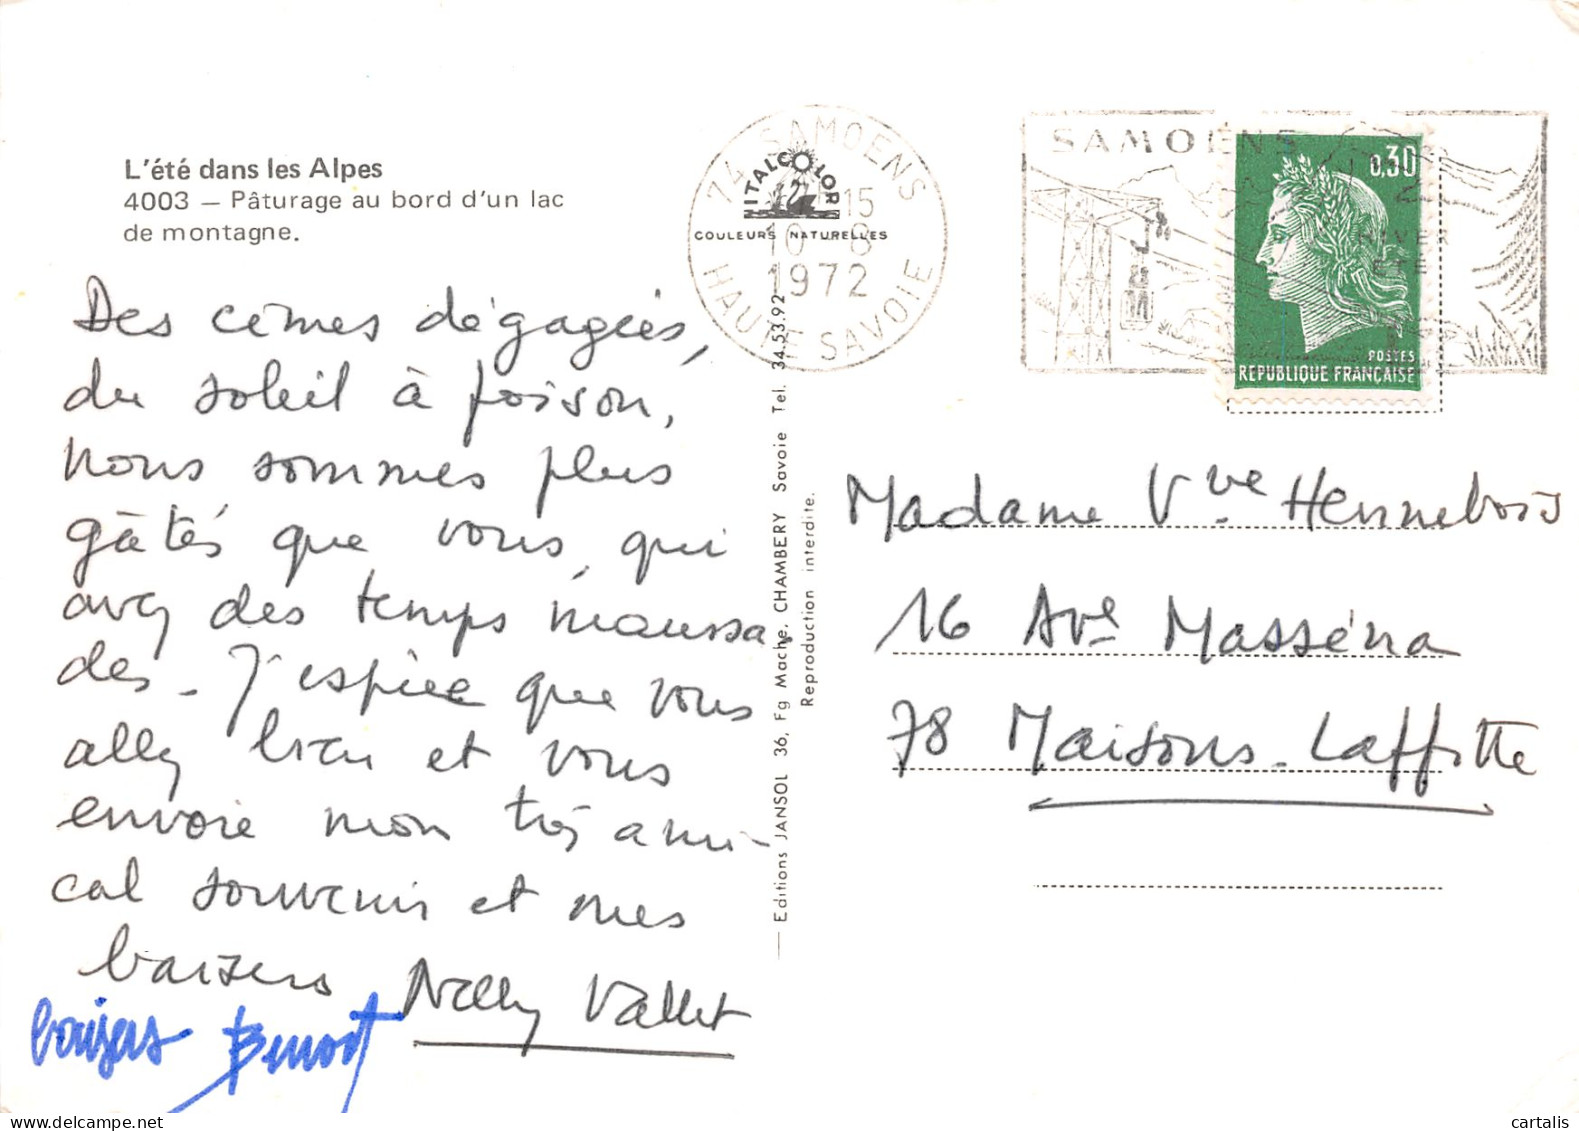 L'été dans les Alpes
4003 — Pâturage au bord d'un lac
de montagne.
Des cimes dégagées,
du soleil à foison,
nous sommes plus
gâtés que vous, qui
avez des temps maussa
des. J'espère que vous
allez bien et vous
envoie mon très ami-
cal souvenir et mes
baisers Nelly Vallet
baisers Benoit
74 SAMOENS
15
10-8
1972
HAUTE SAVOIE
ITALCOLOR
COULEURS NATURELLES
Editions JANSOL 36, Fg Mache. CHAMBERY Savoie Tel. 34.53.92
Reproduction interdite.
SAMOËNS
HIVER
ÉTÉ
0,30
POSTES
REPUBLIQUE FRANÇAISE
Madame Vve Hennebois
16 Ave Masséna
78 Maisons-Laffitte
delcampe.net
cartalis